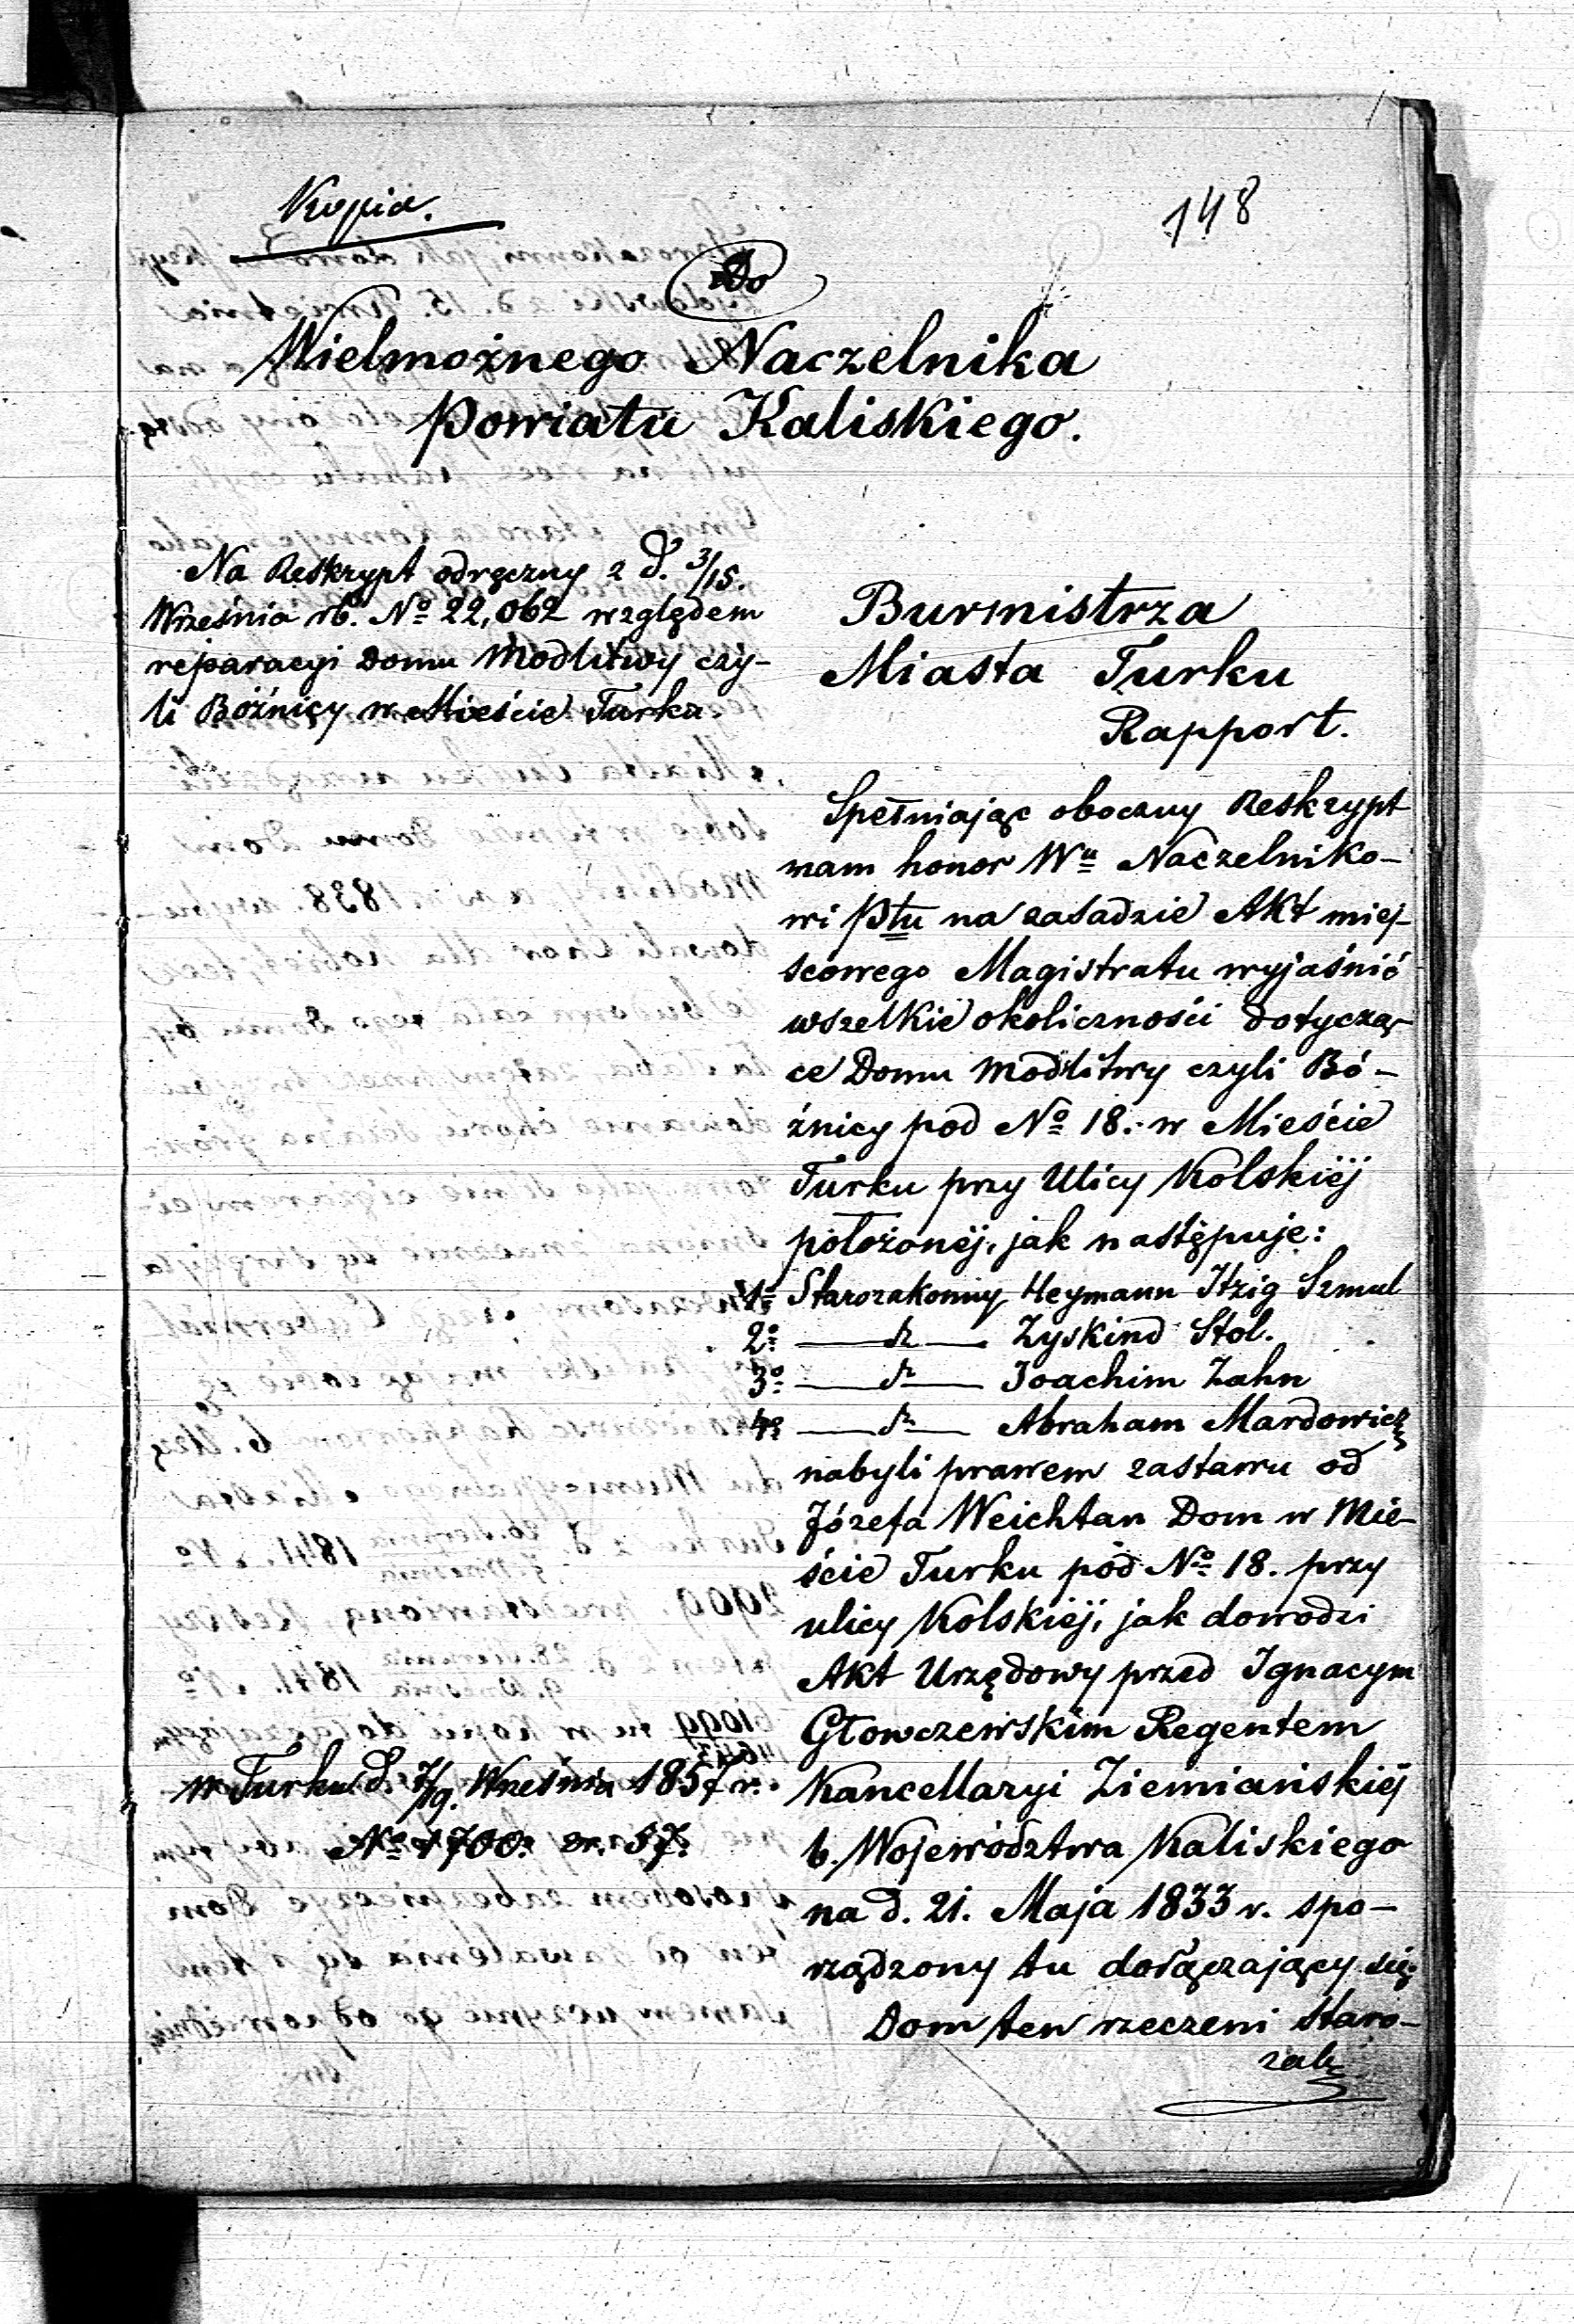 Kopia.
148
Do
Wielmożnego Naczelnika
Powiatu Kaliskiego.
Na Reskrypt odręczny z d. 3/15.
Września rb. No 22,062 względem
reparacyi Domu Modlitwy czy-
li Bóżnicy w Mieście Turku.
Burmistrza
Miasta Turku
Rapport.
Spełniając oboczny Reskrypt
mam honor Wu Naczelniko-
wi Ptu na zasadzie Akt miej-
scowego Magistratu wyjaśnić
wszelkie okoliczności dotyczą-
ce Domu Modlitwy czyli Bó-
źnicy pod No 18. w Mieście
Turku przy Ulicy Kolskiéj
położonéj, jak następuje:
1o Starozakonny Heymann Itzig Szmul
2o — dt — Zyskind Stol.
3o — dt — Joachim Zahn
4o — dt — Abraham Mardowicz
nabyli prawem zastawu od
Józefa Weichtan Dom w Mie-
ście Turku pod No 18. przy
ulicy Kolskiéj, jak dowodzi
Akt Urzędowy przed Ignacym
Głowczewskim Regentem
Kancellaryi Ziemiańskiéj
b. Województwa Kaliskiego
na d. 21. Maja 1833 r. spo-
rządzony tu dołączający się.
Dom ten rzeczeni Staro-
zak
w Turku d. 7/19. Września 1857 r.
No 1700. 57.